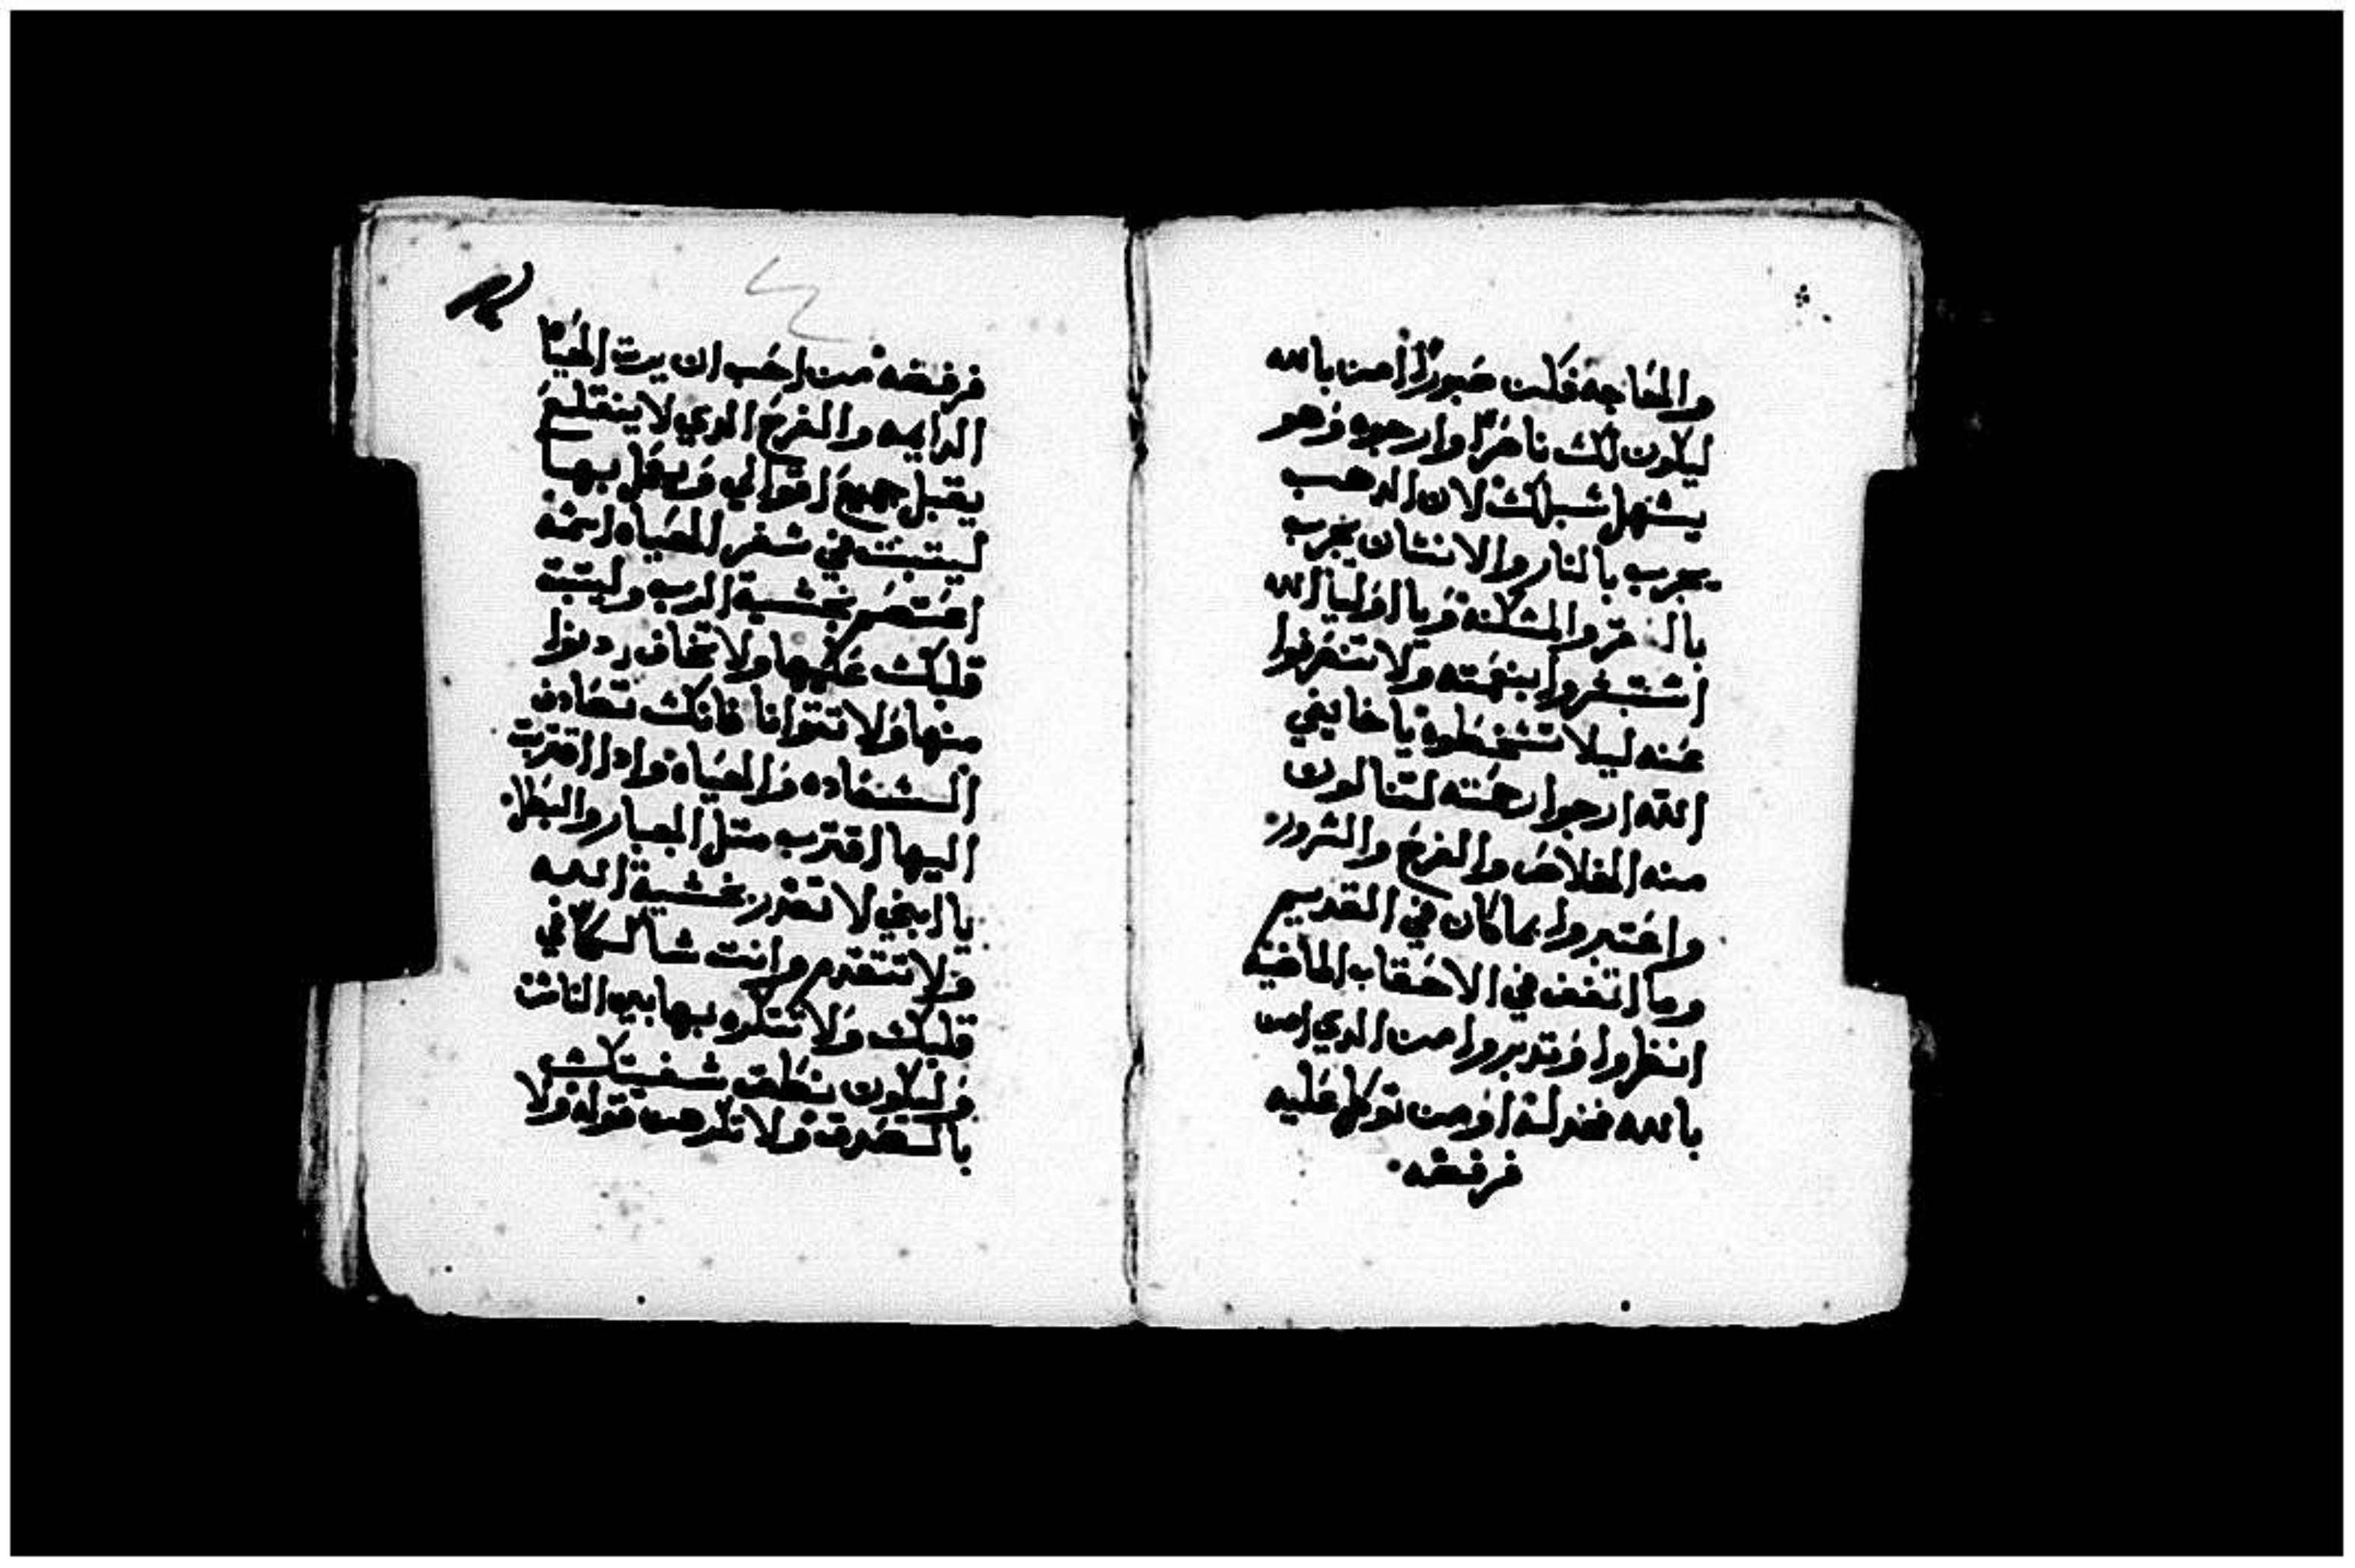 والحاجه فكن صبورا امن بالله
ليكون لك ناصرا وارجوه وهو
يسهل سبلك لان الدهب
يجرب بالنار والانسان يجرب
والمسكنه ويا اوليا الله
استبشروا بنعمته ولا تنصرفوا
عنه ليلا تسخطوه يا خايفي
الله ارجوا رحمته لتنالون
منه الخلاص والفرح والسرور
واعتبروا بما كان في القديم
وما اتفق في الاحقاب الماضية
انظروا وتدبروا من الدي امن
بالله فخدله او من توكل عليه
فرفضه
فرفضه من احب ان يرت الحياة
الدايمه والفرح الدي لا ينقلع
يقبل جميع اقوالي ويعمل بها
ليتبت في سفر الحياه اسمه
اعتصم بخشية الرب وليتبت
قلبك عليها ولا تخاف ردبوا
منها ولا تتوانا فانك تصادف
السعاده والحياه وادا اقتربت
اليها اقترب متل الجبار والبطل
يا ابني لا تغدر بخشية الله
ولا تتقدم وانت شاكا في
قلبك ولا تتكره بها بين الناس
وليكون نطق شفتيك
بالصدق ولا تكرمن قوله ولا